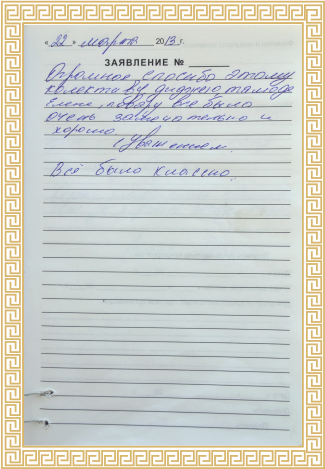 « 22 » марта 2013 г.
ЗАЯВЛЕНИЕ №
Огромное спосибо этому
колективу диджею, тамаде
Елене, повару Всё было
очень замечательно и
хорошо
С уважением.
Всё было классно.